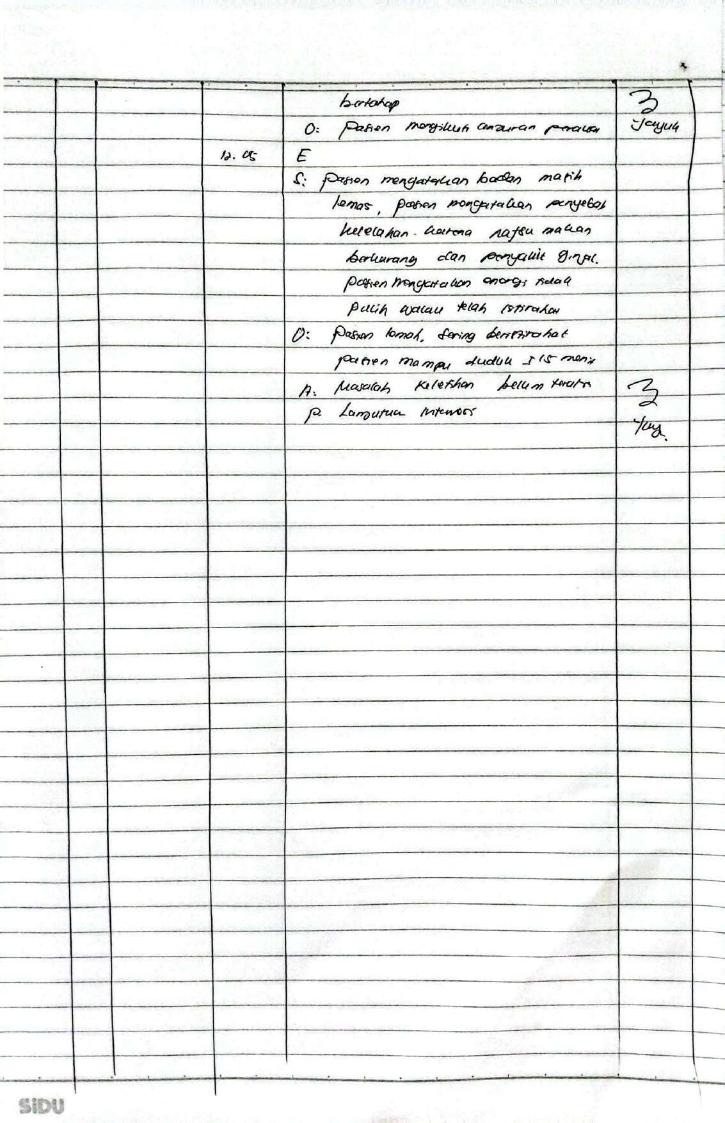 bertahap
O: Pasien mengikuti anjuran perawat Yayuk
12.05 E
S: Pasien mengatakan badan masih
lemas, pasien mengatakan penyebab
kelelahan karena nafsu makan
berkurang dan penyakit ginjal.
pasien mengatakan energi tidak
pulih walau telah istirahat
O: Pasien lemah, sering beristirahat
pasien mampu duduk ± 15 menit
A: Masalah keletihan belum teratasi
P Lanjutkan intervensi
Yuy.
SiDU